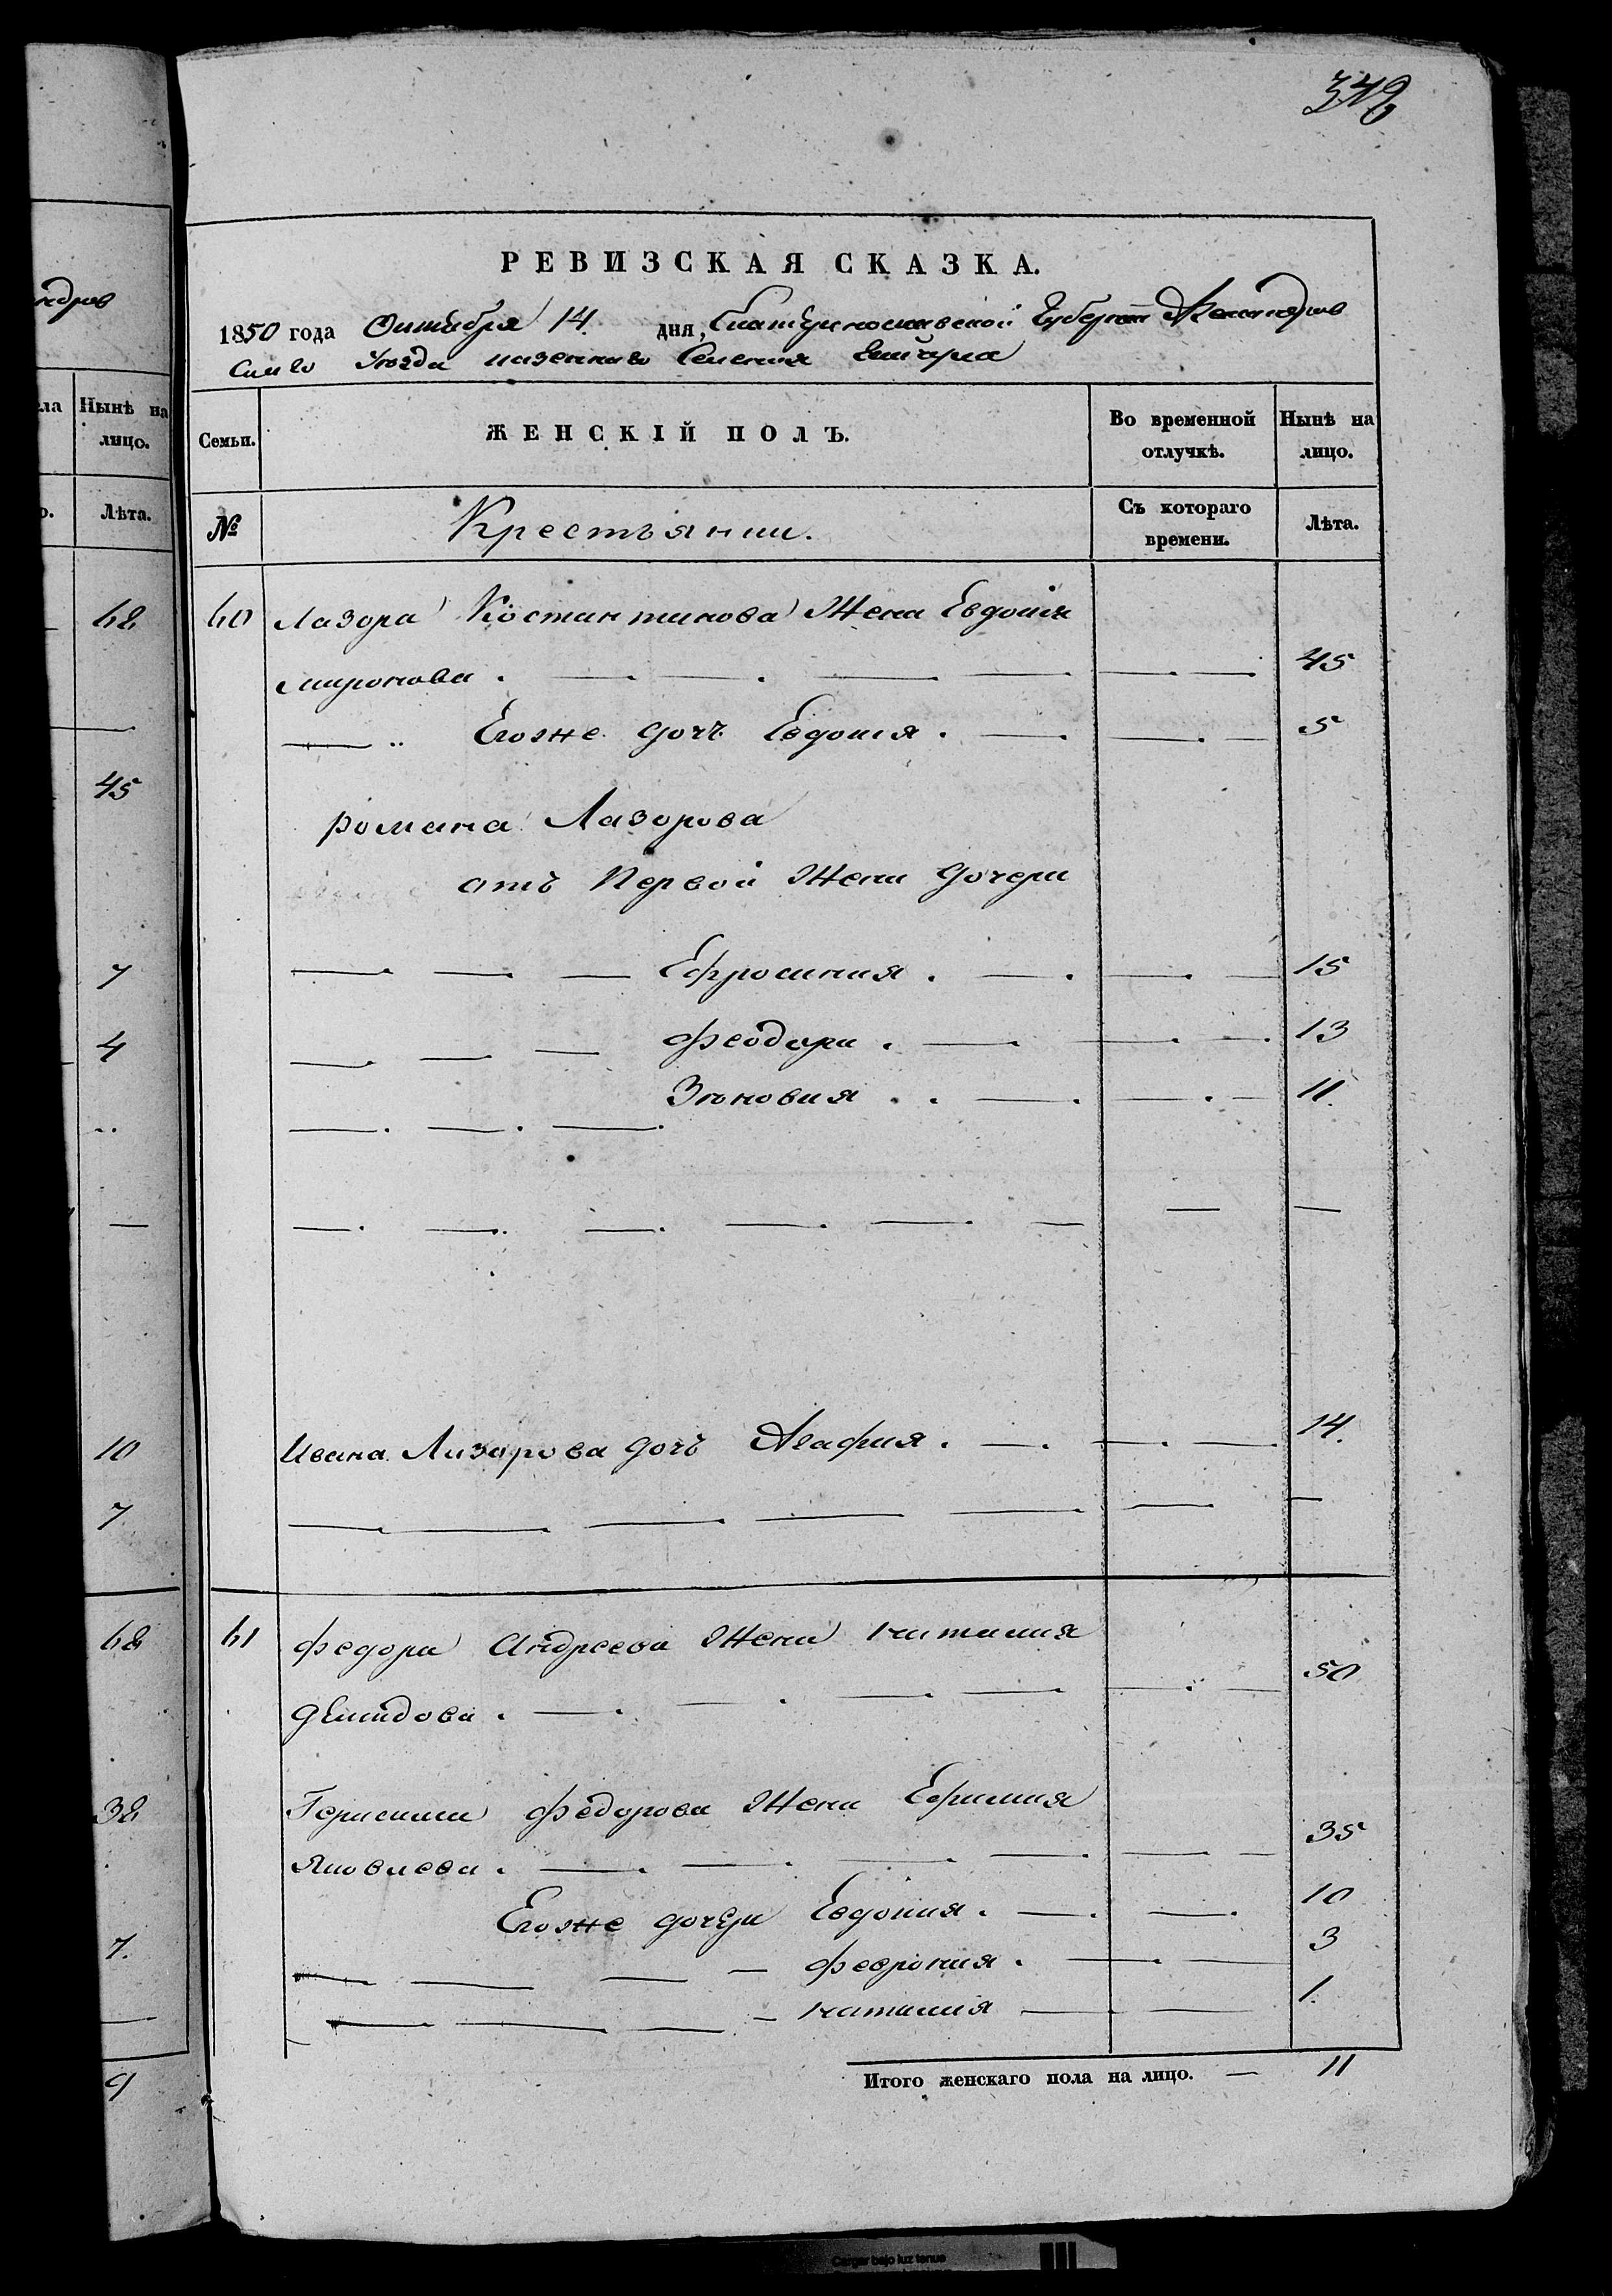 342
РЕВИЗСКАЯ СКАЗКА.
1850 года Октября 14. дня, Екатеринославской Губернии Александров
скаго Уезда казеннаго Селения
ндров
Нынѣ на лицо.
Лѣта.
Семьи. ЖЕНСКІЙ ПОЛЪ. Во временной отлучкѣ. Нынѣ на лицо.
№ Крестьянии. Съ котораго времени. Лѣта.
60 Лазора Костантинова Жена Евдокия
миронова. 45
Егоже дочь Евдокия. 5
романа Лазорова
отъ Первой Жени дочери
Ефросиния. 15
Феодора. 13
Зиновия.. 11.
Ивана Лазорова дочь Агафия. 14.
61 Федора Андреева Жена наталия
демидова. 50
Герасима Федорова Жена Ефимия
Яковлева. 35
Егоже дочери Евдокия. 10
Феврония. 3
наталия 1.
Итого женскаго пола на лицо. — 11
62
45
7
4
10
7
62
32
7.
9